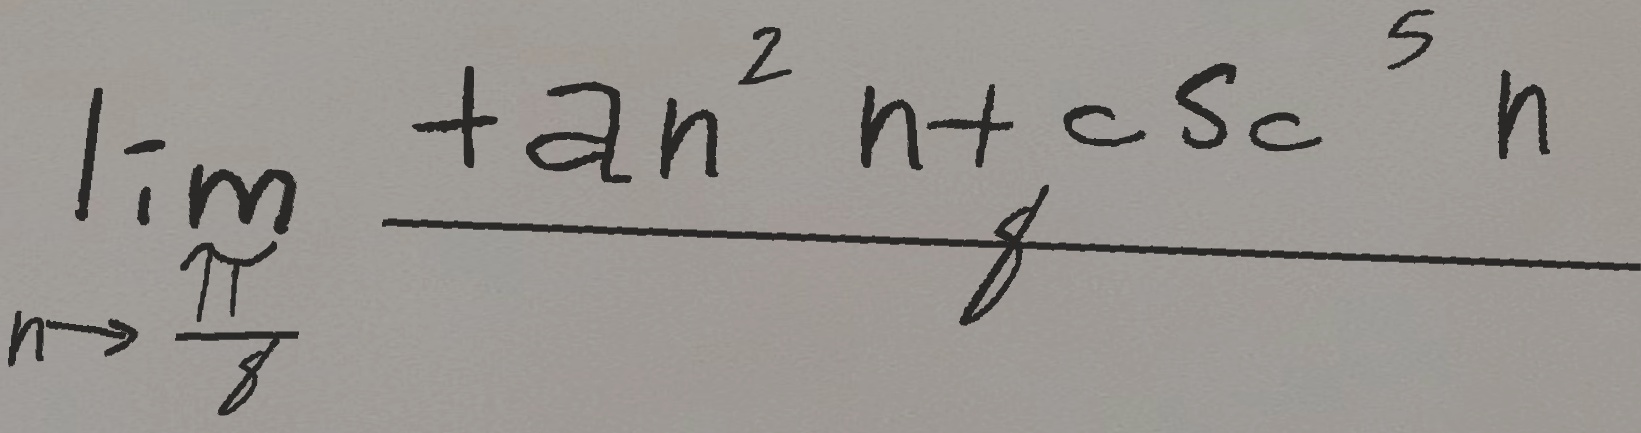 lim n→π/8 (tan² n + csc⁵ n)/8